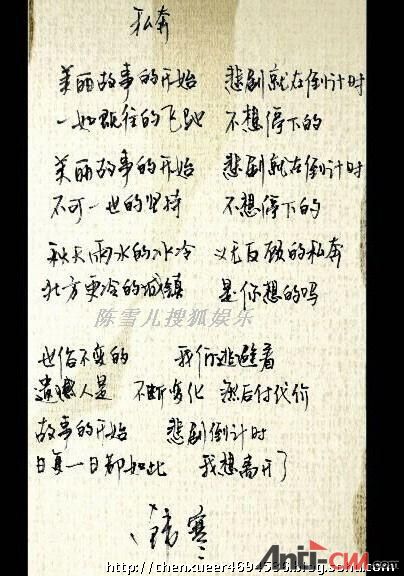 私奔
美丽故事的开始 悲剧就在倒计时
一如既往的飞驰 不想停下的
美丽故事的开始 悲剧就在倒计时
不可一世的坚持 不想停下的
秋天雨水的冰冷 义无反顾的私奔
北方更冷的城镇 是你想的吗
陈雪儿搜狐娱乐
世俗不变的 我们逃避着
遗憾人是 不断劣化 然后付代价
故事的开始 悲剧倒计时
日复一日都如此 我想离开了
韩寒
Anti-CNN.com
http://chenxueer4694586.blog.sohu.com